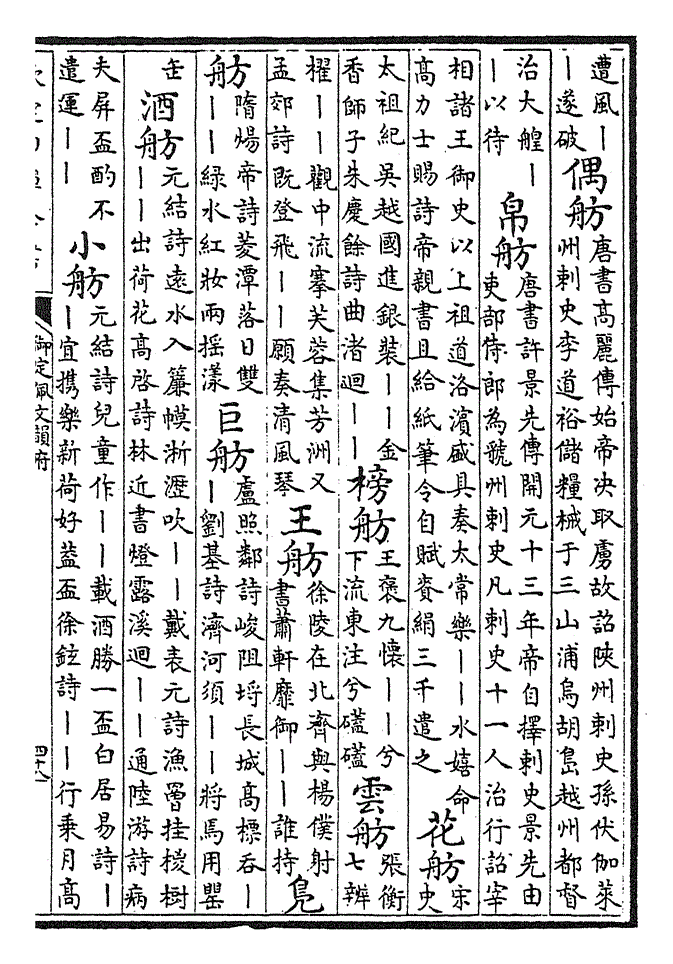 遭風｜｜遂破 偶舫 唐書高麗傳始帝决取虜故詔陜州刺史孫伏伽萊州刺史李道裕儲糧械于三山浦烏胡島越州都督
治大艎｜｜以待 帛舫 唐書許景先傳開元十三年帝自擇刺史景先由吏部侍郎為虢州刺史凡刺史十一人治行詔宰
相諸王御史以上祖道洛濱盛具奏太常樂｜｜水嬉命高力士賜詩帝親書且給紙筆令自賦賚絹三千遣之 花舫 宋史
太祖紀吳越國進銀裝｜｜金香師子朱慶餘詩曲渚迴｜｜ 榜舫 王褒九懷｜｜兮下流東注兮礚礚 雲舫 張衡七辨
櫂｜｜觀中流搴芙蓉集芳洲又孟郊詩既登飛｜｜願奏清風琴 王舫 徐陵在北齊與楊僕射書蕭軒靡御｜｜誰持 鳬
舫 隋煬帝詩菱潭落日雙｜｜綠水紅妝兩摇漾 巨舫 盧照鄰詩峻阻埒長城高標吞｜｜劉基詩濟河須｜｜將馬用罌
缶 酒舫 元結詩遠水入簾幙淅瀝吹｜｜戴表元詩漁罾挂榿樹｜｜出荷花高啓詩林近書燈露溪迴｜｜通陸游詩病
夫屏盃酌不遣運｜｜ 小舫 元結詩兒童作｜｜載酒勝一盃白居易詩｜｜宜携樂新荷好葢盃徐鉉詩｜｜行乗月高
御定佩文韻府
四十八